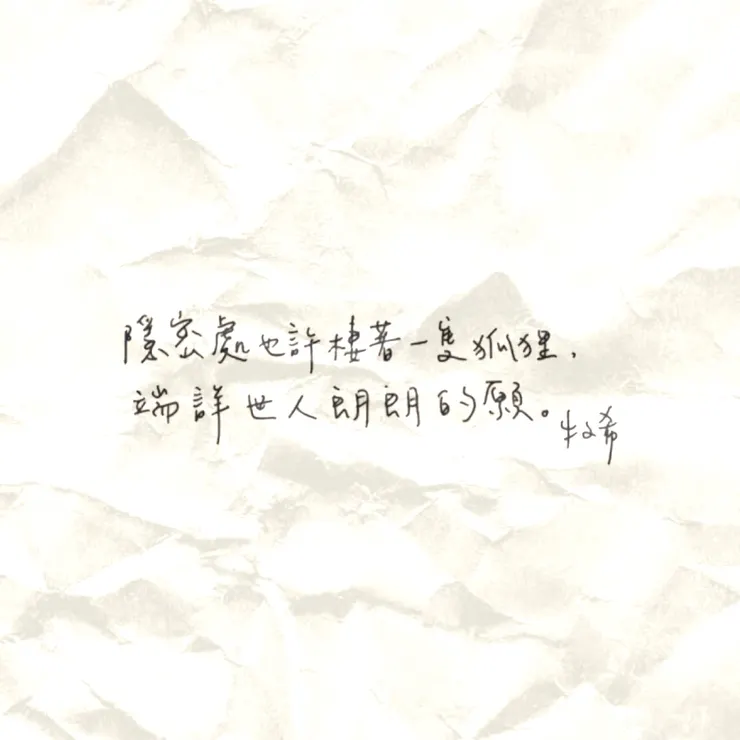 隱密處也許棲著一隻狐狸，
端詳世人朗朗的願。
牧希